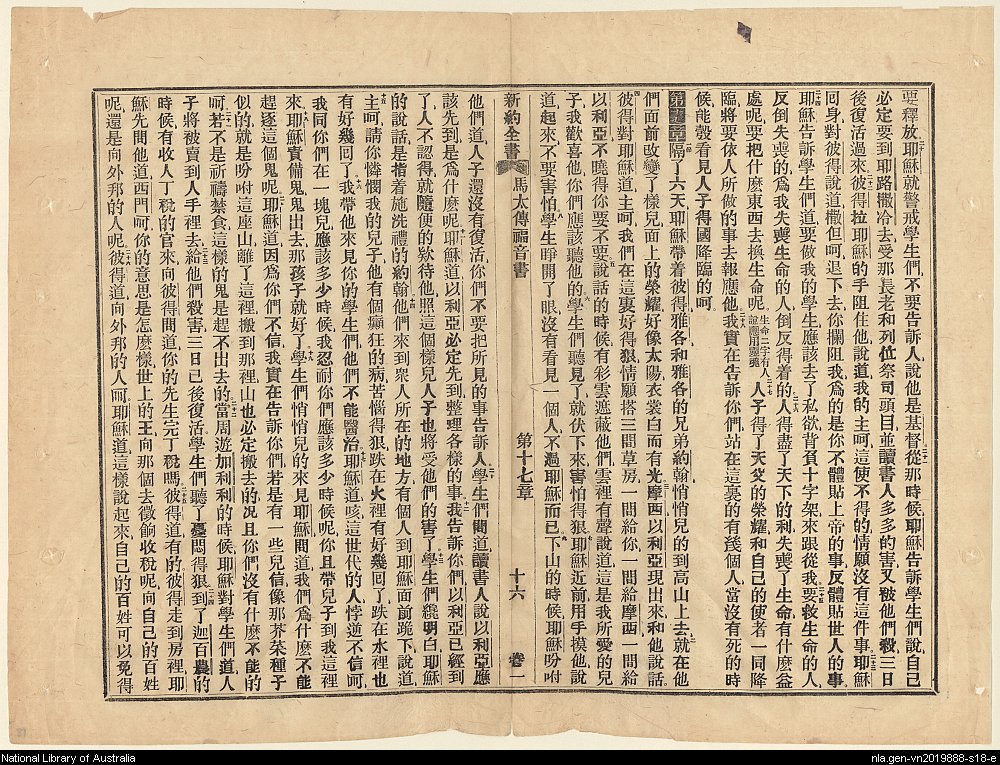 要釋放耶穌就警戒學生們不要告訴人說他是基督從那時候耶穌告訴學生們說自己
必定要到耶路撒冷去受那長老和列位祭司頭目並讀書人多多的害又被他們殺三日
後復活過來彼得拉耶穌的手阻住他說道我的主呵這使不得的情願沒有這件事耶穌
囘身對彼得說道撒但呵退下去你攔阻我爲的是你不體貼上帝的事反體貼世人的事
耶穌告訴學生們道要做我的學生應該去了私欲背負十字架來跟從我要救生命的人
反倒失喪的爲我失喪生命的人倒反得着的人得盡了天下的利失喪了生命有什麽益
處呢要把什麽東西去換生命呢生命二字有人說應用靈魂人子得了天父的榮耀和自己的使者一同降
臨將要依人所做的事去報應他我實在告訴你們站在這裏的有幾個人當沒有死的時
候能彀看見人子得國降臨的呵
隔了六天耶穌帶着彼得雅各和雅各的兄弟約翰悄悄兒的到高山上去就在他
們面前改變了樣兒面上的榮耀好像太陽衣裳白而有光摩西以利亞現出來和他說話
彼得對耶穌道主呵我們在這裏好得狠情願搭三間草房一間給你一間給摩西一間給
以利亞不曉得你要不要說話的時候有彩雲遮蔽他們雲裡有聲說道這是我所愛的兒
子我歡喜他你們應該聽他的學生們聽見了就伏下來害怕得狠耶穌近前用手摸他說
道起來不要害怕學生睜開了眼沒有看見一個人不過耶穌而已下山的時候耶穌吩咐
新約全書 馬太傳福音書 第十七章 十六 卷一
他們道人子還沒有復活你們不要把所見的事告訴人學生們問道讀書人說以利亞應
該先到是爲什麽呢耶穌道以利亞必定先到整理各樣的事我告訴你們以利亞已經到
了人不認得就隨便的欵待他照這個樣兒人子也將受他們的害了學生們纔明白耶穌
的說話是指着施洗禮的約翰他們來到衆人所在的地方有個人到耶穌面前跪下說道
主呵請你憐憫我的兒子他有個癲狂的病苦惱得狠跌在火裡有好幾囘了跌在水裡也
有好幾囘了我帶他來見你的學生們他們不能醫治耶穌道咳這世代的人悖逆不信呵
我同你們在一塊兒應該多少時候我忍耐你們應該多少時候呢你且帶兒子到我這裡
來耶穌責備鬼鬼出去那孩子就好了學生們悄悄兒的來見耶穌問道我們爲什麽不能
趕逐這個鬼呢耶穌道因爲你們不信我實在告訴你們若是有一些兒信像那芥菜種子
似的就是吩咐這座山離了這裡搬到那裡山也必定搬去的况且你們沒有什麽不能的
呵若不是祈禱禁食這樣的鬼是趕不出去的當周遊加利利的時候耶穌對學生們道人
子將被賣到人手裡去給他們殺害三日己後復活學生們聽了憂悶得狠到了迦百農的
時候有收人丁稅的官來向彼得問道你的先生完丁稅嗎彼得道有的彼得走到房裡耶
穌先問他道西門呵你的意思是怎麽樣世上的王向那個去徵餉收稅呢向自己的百姓
呢還是向外邦的人呢彼得道向外邦的人呵耶穌道這樣說起來自己的百姓可以免得
National Library of Australia
nla.gen-vn2019888-s18-e